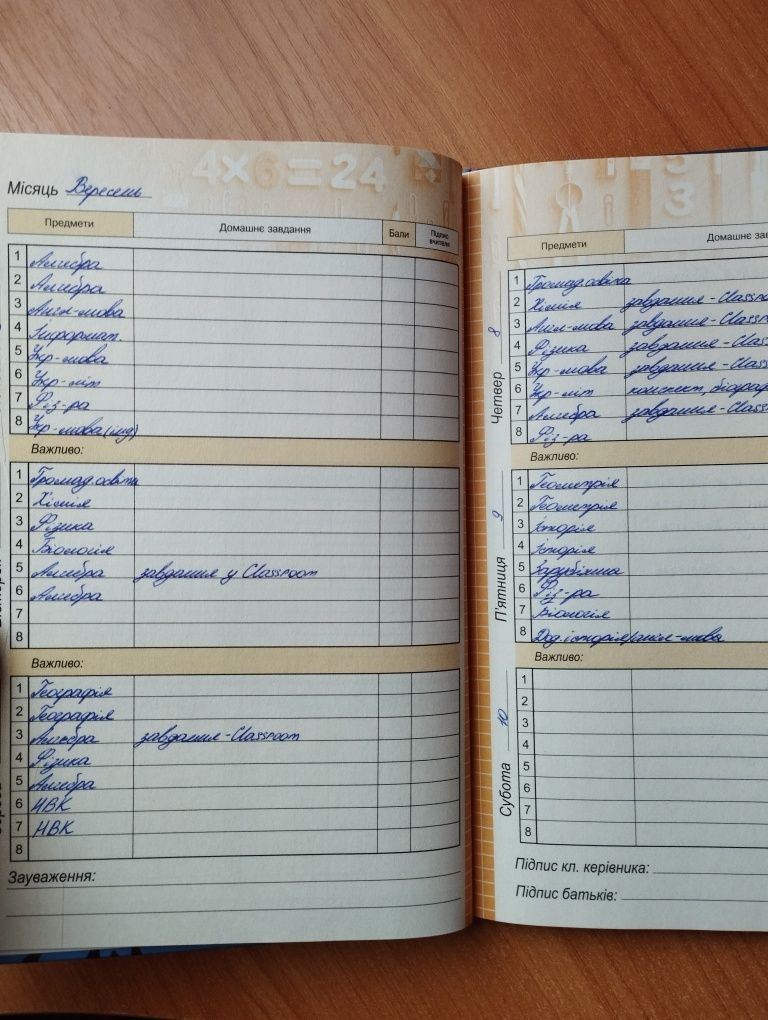 4×6=24
Місяць Вересень
Предмети Домашнє завдання Бали Підпис вчителя
1 Алгебра
2 Алгебра
3 Англ-мова
4 Інформат.
5 Укр-мова
6 Укр-літ
7 Фіз-ра
8 Укр-мова (інд)
Важливо:
1 Громад.освіта
2 Хімія
3 Фізика
4 Біологія
5 Алгебра завдання у Classroom
6 Алгебра
7
8
Важливо:
1 Географія
2 Географія
3 Алгебра завдання-Classroom
4 Фізика
5 Алгебра
6 НВК
7 НВК
8
Зауваження:
3
Предмети Домашнє зав
Четвер 8
1 Громад.освіта
2 Хімія завдання-Classro
3 Англ-мова завдання-Classr
4 Фізика завдання-Class
5 Укр-мова завдання-Class
6 Укр-літ конспект, біограф
7 Алгебра завдання-Class
8 Фіз-ра
Важливо:
П'ятниця 9
1 Геометрія
2 Геометрія
3 Історія
4 Історія
5 Зарубіжна
6 Фіз-ра
7 Біологія
8 Дод.історія/англ-мова
Важливо:
Субота 10
1
2
3
4
5
6
7
8
Підпис кл. керівника:
Підпис батьків: